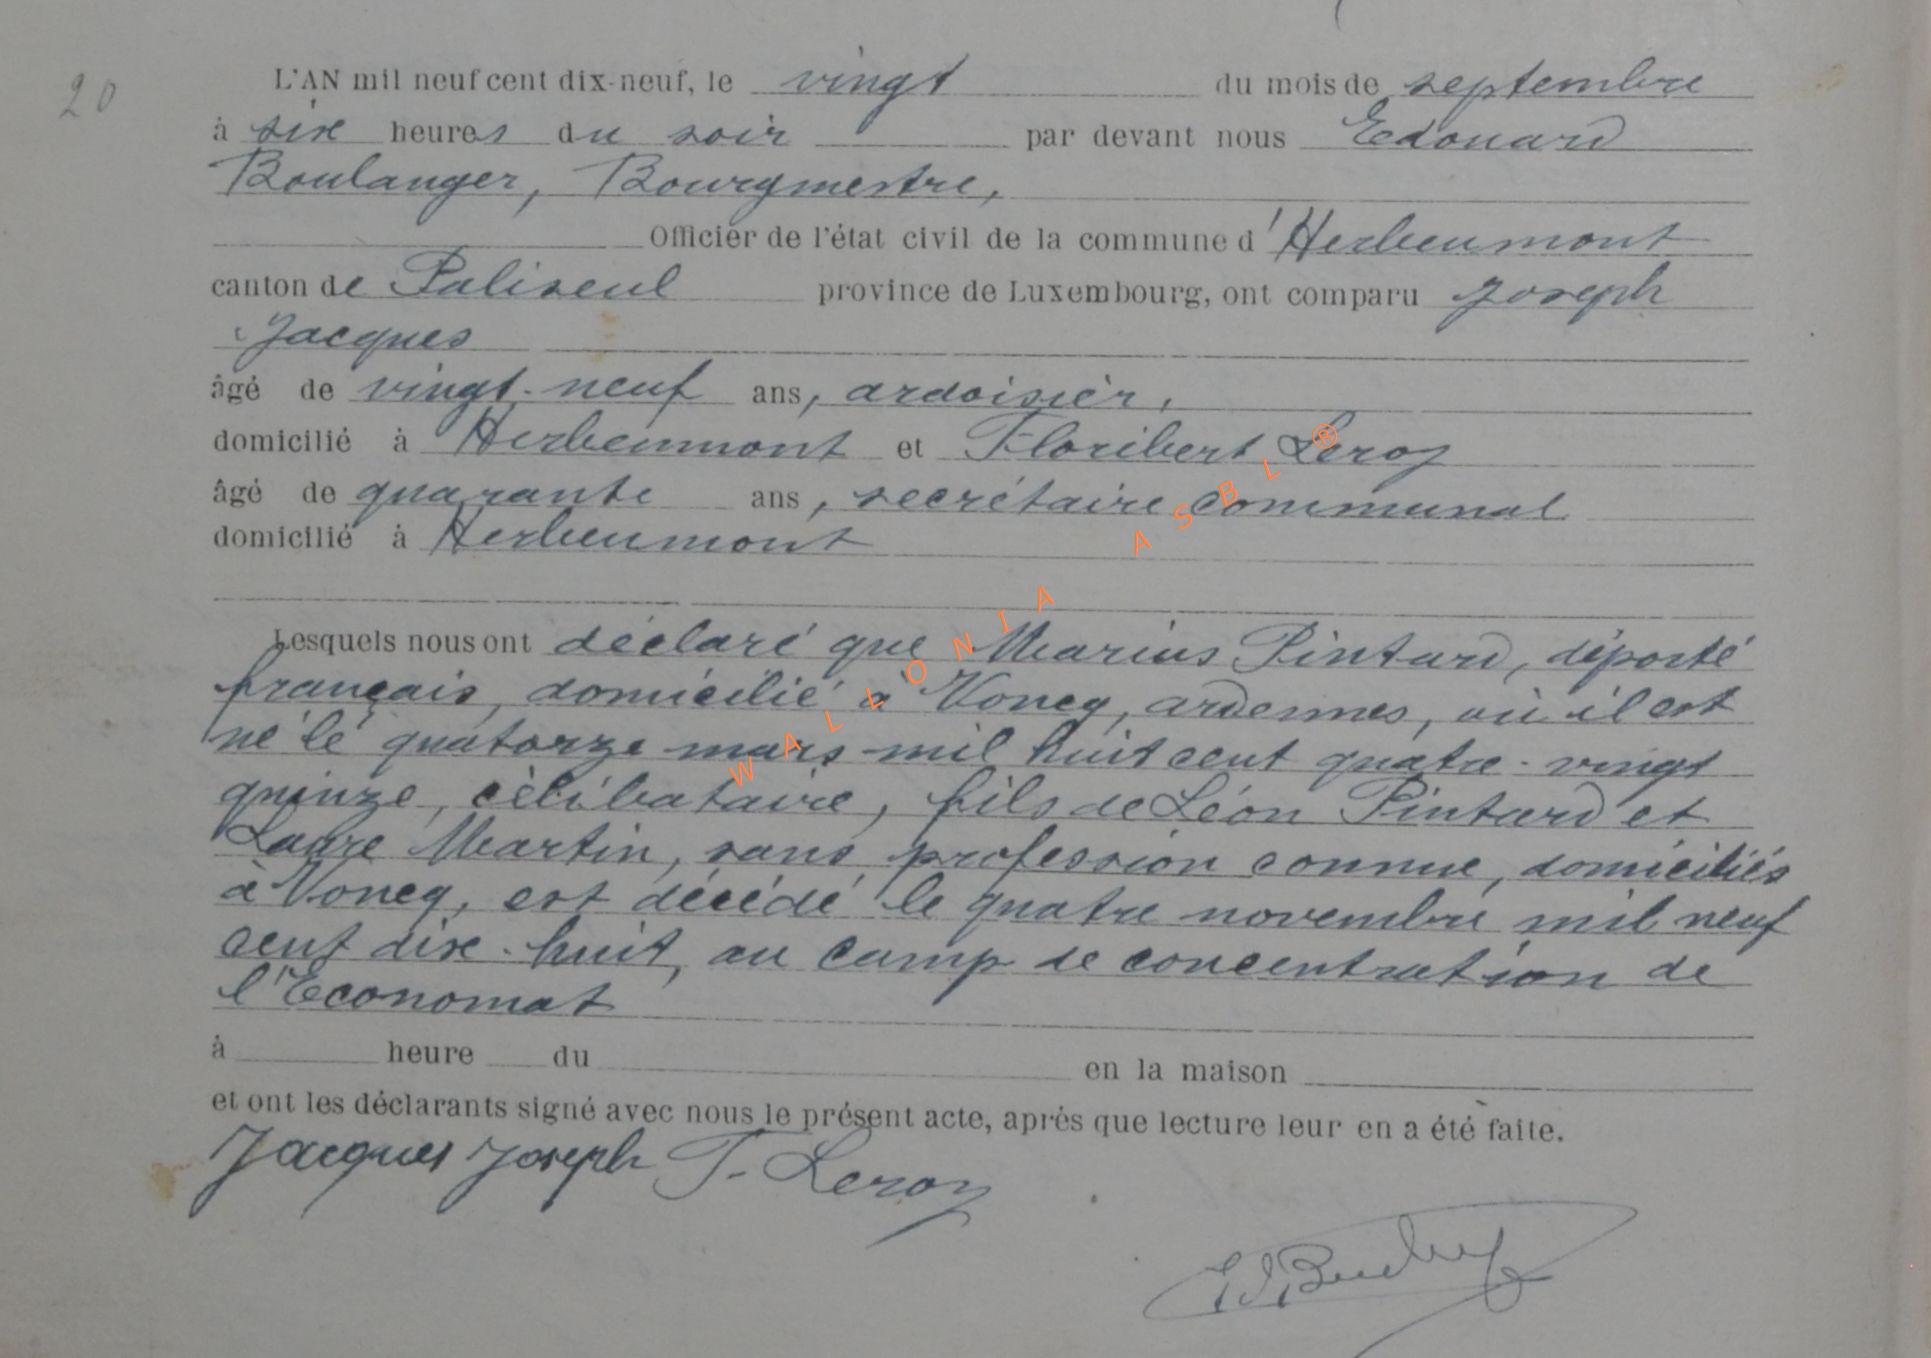 20
L'AN mil neuf cent dix-neuf, le vingt du mois de septembre
à six heures du soir par devant nous Edouard
Boulanger, Bourgmestre,
Officier de l'état civil de la commune d'Herbeumont
canton de Paliseul province de Luxembourg, ont comparu Joseph
Jacques
âgé de vingt-neuf ans, ardoisier,
domicilié à Herbeumont et Floribert Leroy
âgé de quarante ans, secrétaire communal
domicilié à Herbeumont
Lesquels nous ont déclaré que Marius Pintard, déporté
français, domicilié à Voncq, ardennes, où il est
né le quatorze mars mil huit cent quatre-vingt
quinze, célibataire, fils de Léon Pintard et
Laure Martin, sans profession connue, domiciliés
à Voncq, est décédé le quatre novembre mil neuf
cent dix-huit, au camp de concentration de
l'Economat
à heure du en la maison
et ont les déclarants signé avec nous le présent acte, après que lecture leur en a été faite.
Jacques Joseph F. Leroy
WALLONIA ASBL ®